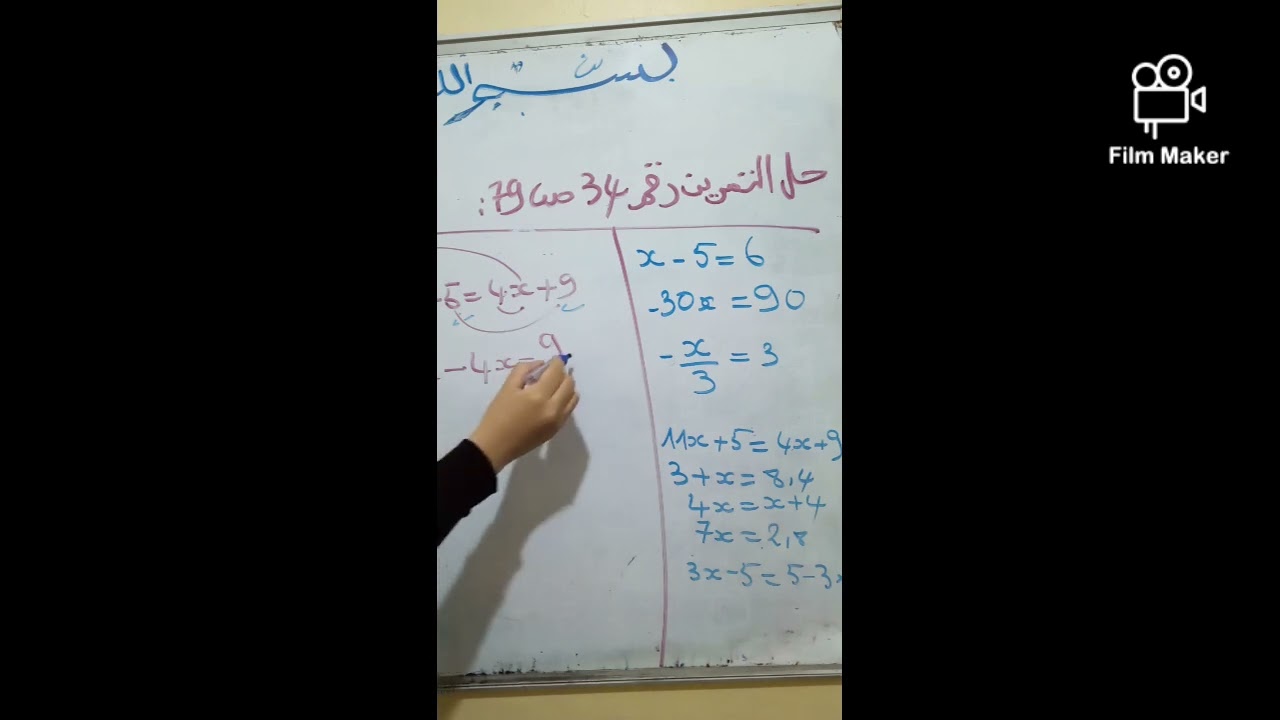 بسم الله
حل التمرين رقم 34 ص 79:
x - 5 = 6
-30x = 90
-x/3 = 3
11x + 5 = 4x + 9
3 + x = 8,4
4x = x + 4
7x = 2,8
3x - 5 = 5 - 3x
5 = 4x + 9
- 4x = 9
Film Maker